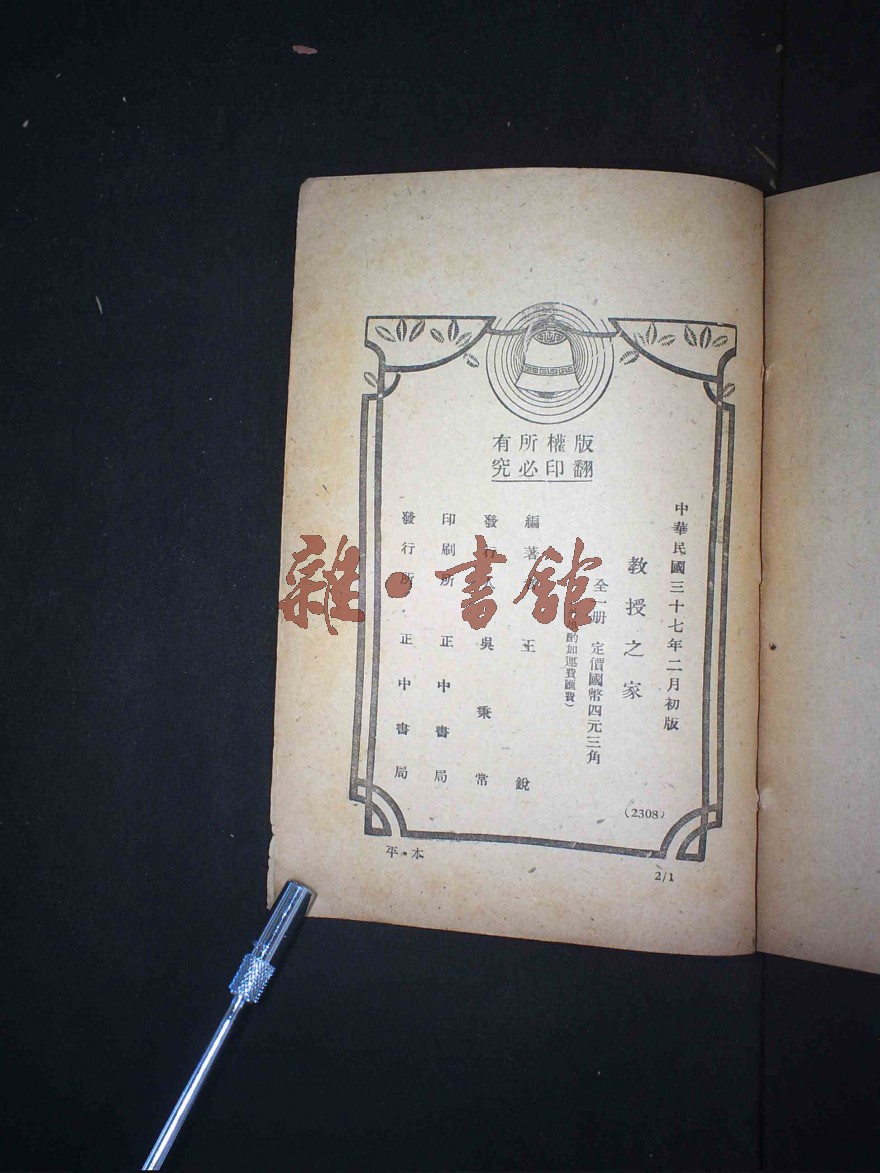 版權所有
翻印必究
中華民國三十七年二月初版
教授之家
全一冊 定價國幣四元三角
酌加運費匯費)
編著 王銳
發行 吳秉常
印刷所 正中書局
發行所 正中書局
(2308)
平·本
2/1
雜·書館